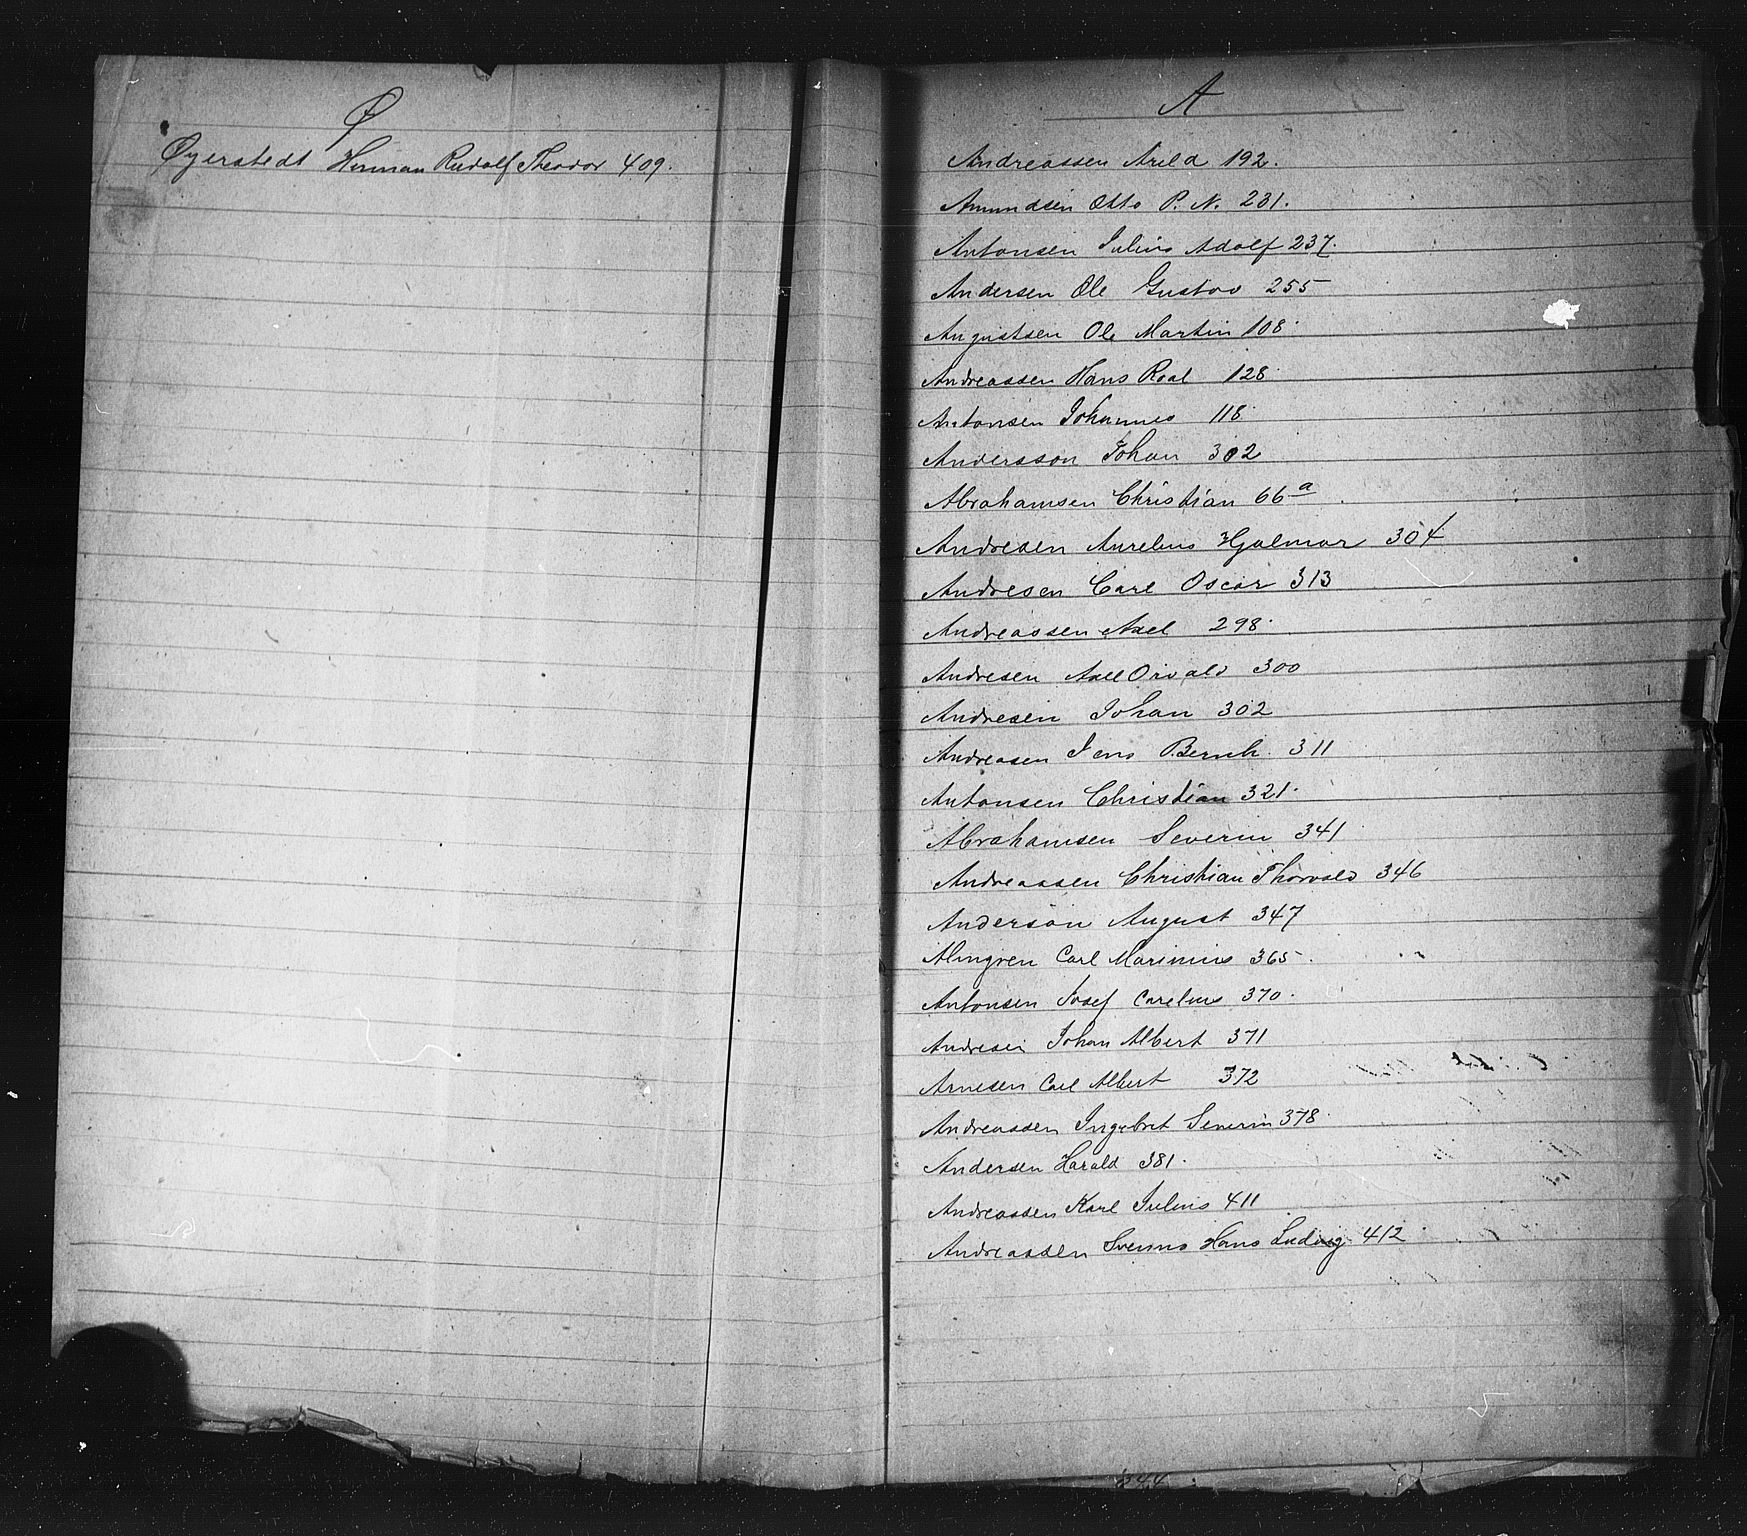 Ø
Øyerstedt Herman Rudolf Theodor 409.
A
Andreassen Arild 192.
Amundsen Otto P. N. 231.
Antonsen Julius Adolf 237.
Andersen Ole Gustav 255
Augustsen Ole Martin 108.
Andreassen Hans Roal 128.
Antonsen Johannes 118.
Andersson Johan 302
Abrahamsen Christian 66a
Andresen Aurelius Hjalmar 304
Andresen Carl Oscar 313
Andreassen Axel 298.
Andresen Axel Orvald 300
Andresen Johan 302
Andreasen Jens Bernh. 311
Antonsen Christian 321.
Abrahamsen Severin 341
Andreassen Christian Thorvald 346
Anderson August 347
Almgren Carl Marinius 365.
Antonsen Josef Carelius 370.
Andresen Johan Albert 371
Arnesen Carl Albert 372
Andreassen Ingebret Severin 378.
Andersen Harald 381.
Andreassen Karl Julius 411
Andreassen Hans Ludvig 412
344